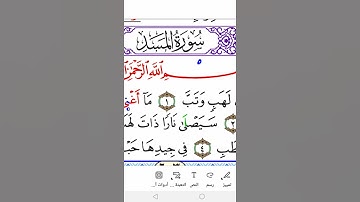 سُورَةُ المَسَدِ
ـمِ اللَّهِ الرَّحْمَٰنِ
لَهَبٍ وَتَبَّ ١ مَا أَغْنَىٰ
٢ سَيَصْلَىٰ نَارًا ذَاتَ لَهَـ
ـطَبِ ٤ فِي جِيدِهَا حَبْـ
تمييز رسم النص الدقيقة ... أدوات أ...